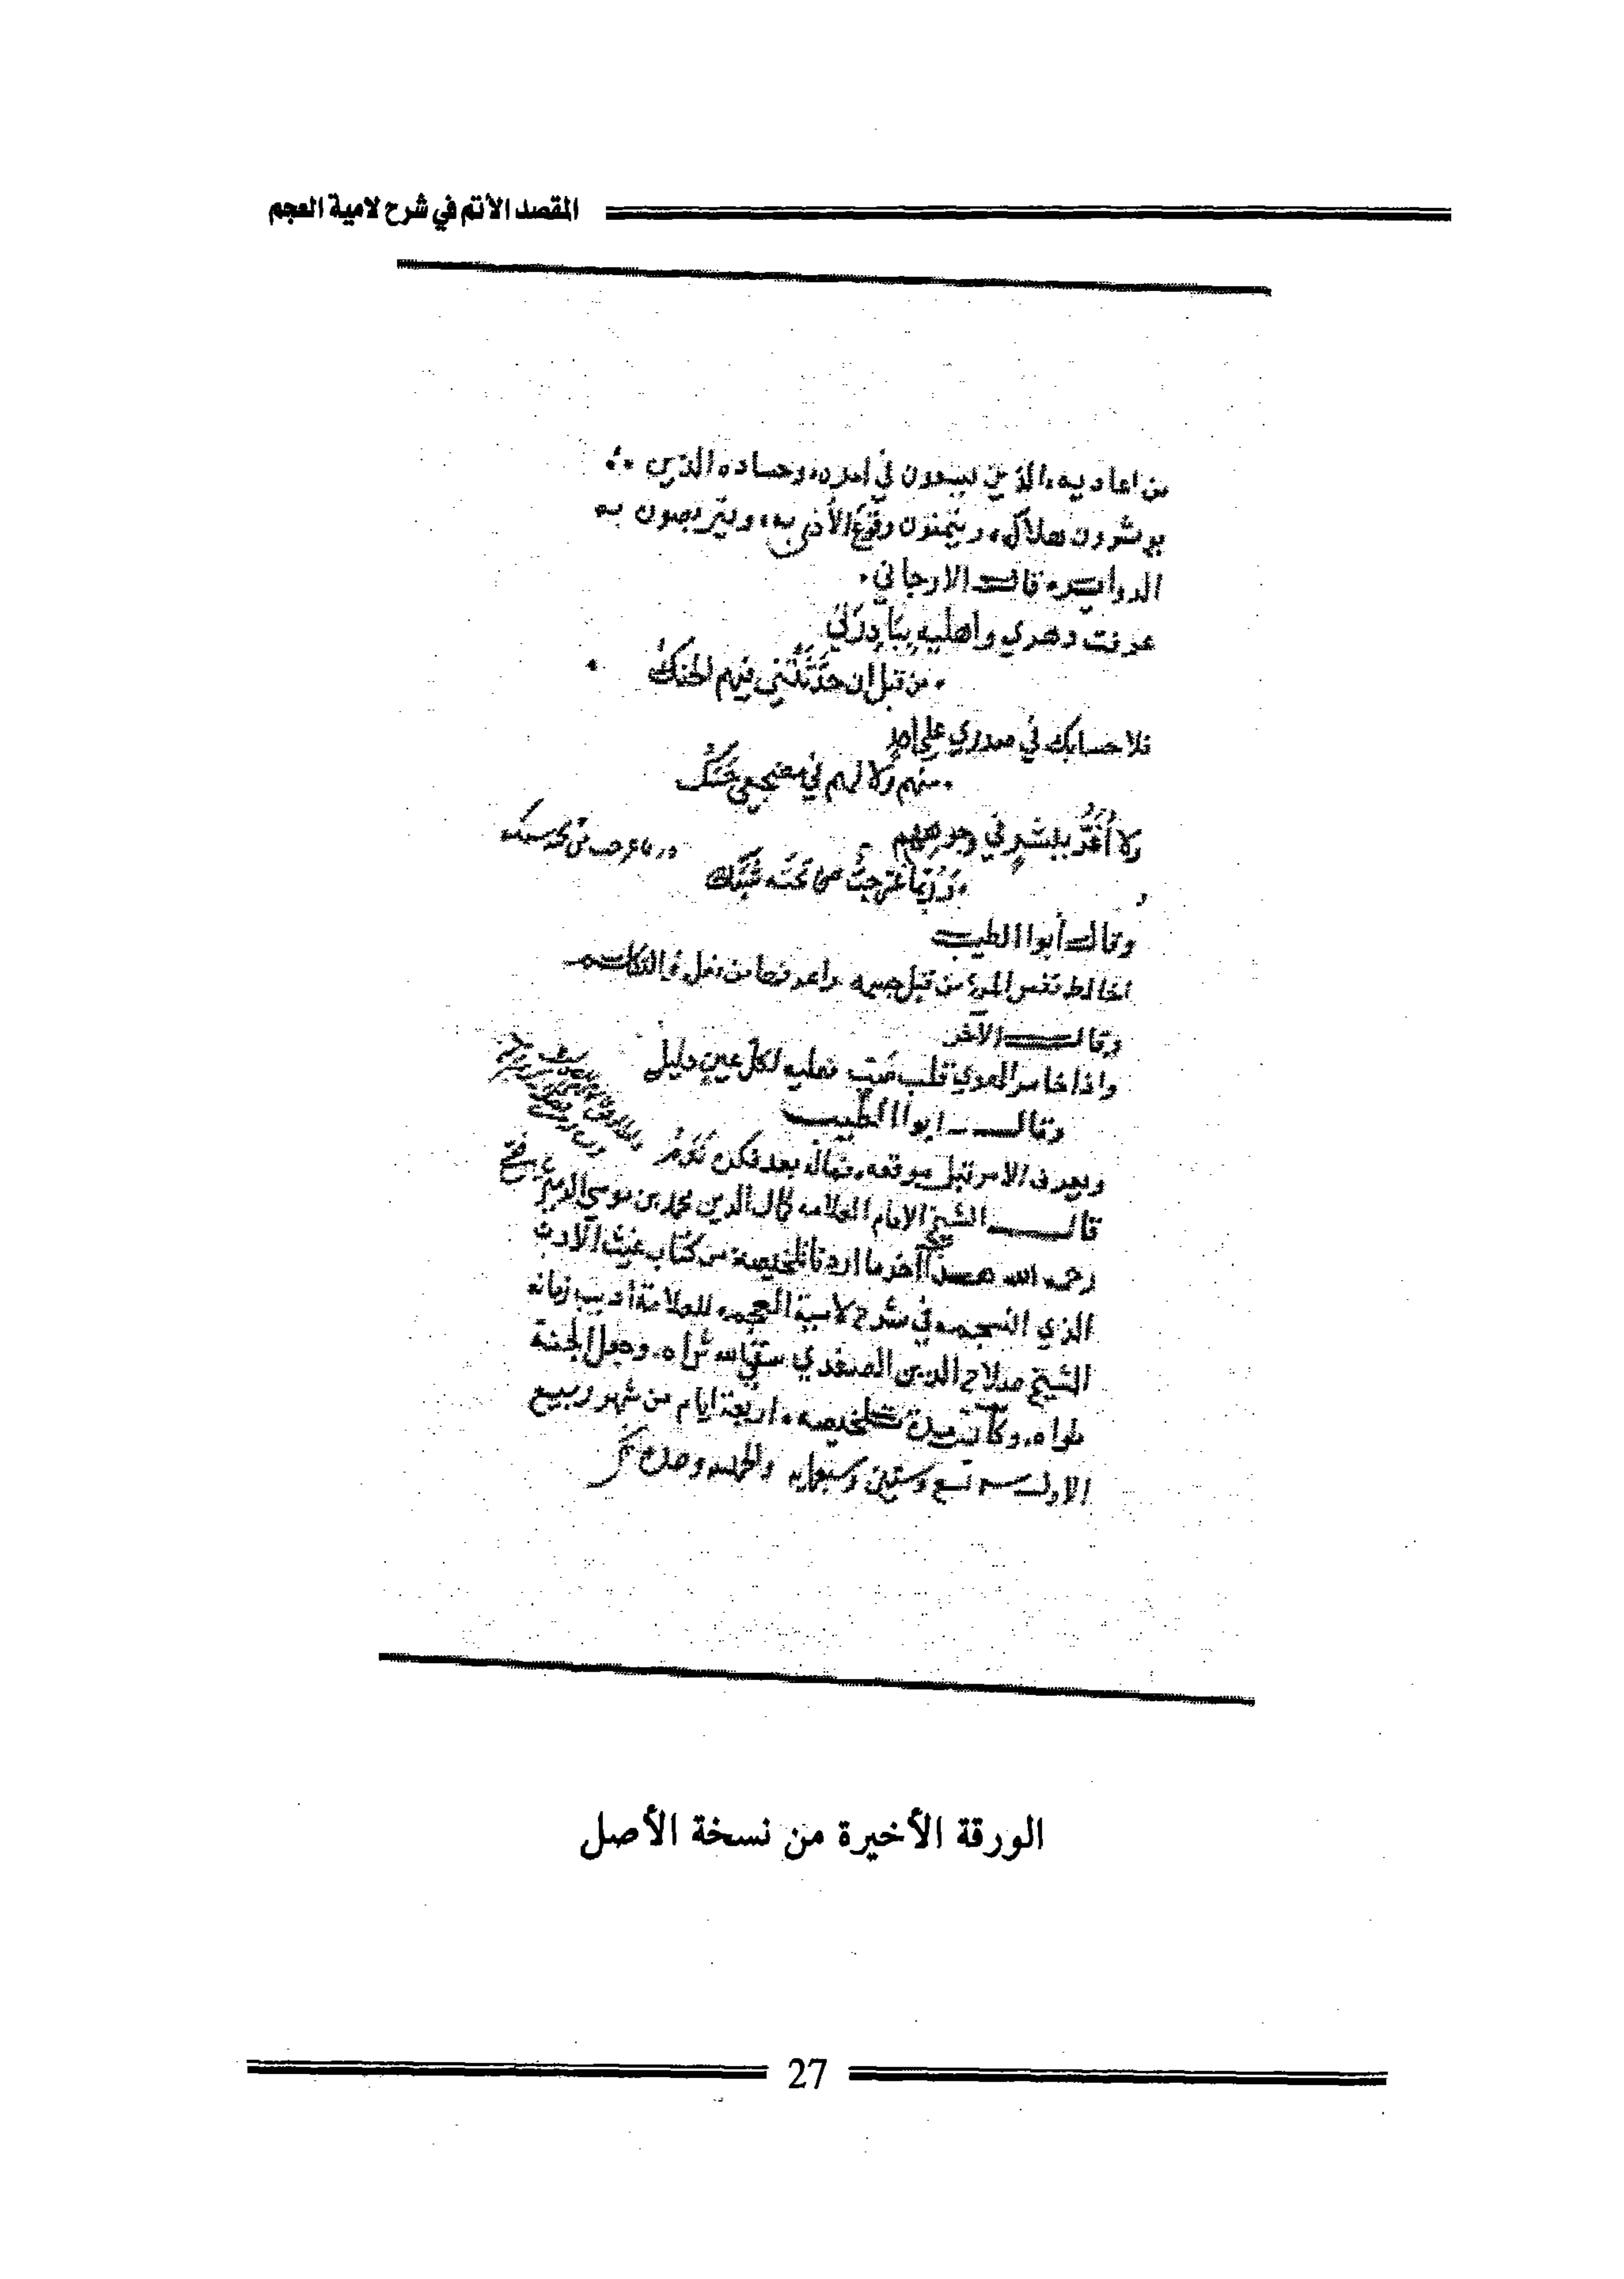 المقصد الأتم في شرح لامية العجم
من اعاديه، الذين يسعون في أمره، وحساده الذين
يوشرون هلاكه، ويتمنون وقوع الأذى به، ويتربصون به
الدواير، قال الارجاني.
عرفت دهري وأهليه ببادرتي
من قبل ان حدثتني فيهم الحنك
فلا حسايك في صدري على احد
منهم ولا لهم في مضجعي حسك
ولا أغر ببشر في وجوههم
وربما غر حب تحته شبك
وقال أبوا الطيب
اخالط نفس المرء من قبل جسمه واعرفها من فعله والتكلم
وقال الآخر
واذا خامر الهوى قلب صب فعليه لكل عين دليل
وقال ابوا الطيب
ويعرف الامر قبل موقعه، فماله بعد فكره ندم
قال الشيخ الامام العلامه كمال الدين محمد بن موسى الدميري
رحمه الله هذا آخر ما اردنا تلخيصه من كتاب غيث الادب
الذي انسجم، في شرح لامية العجم، للعلامة أديب زمانه
الشيخ صلاح الدين الصفدي سقى الله ثراه، وجعل الجنة
مأواه، وكانت مدة تلخيصه، اربعة ايام من شهر ربيع
الاول سنه تسع وستين وسبعمايه والحمد لله وحده
الورقة الأخيرة من نسخة الأصل
27